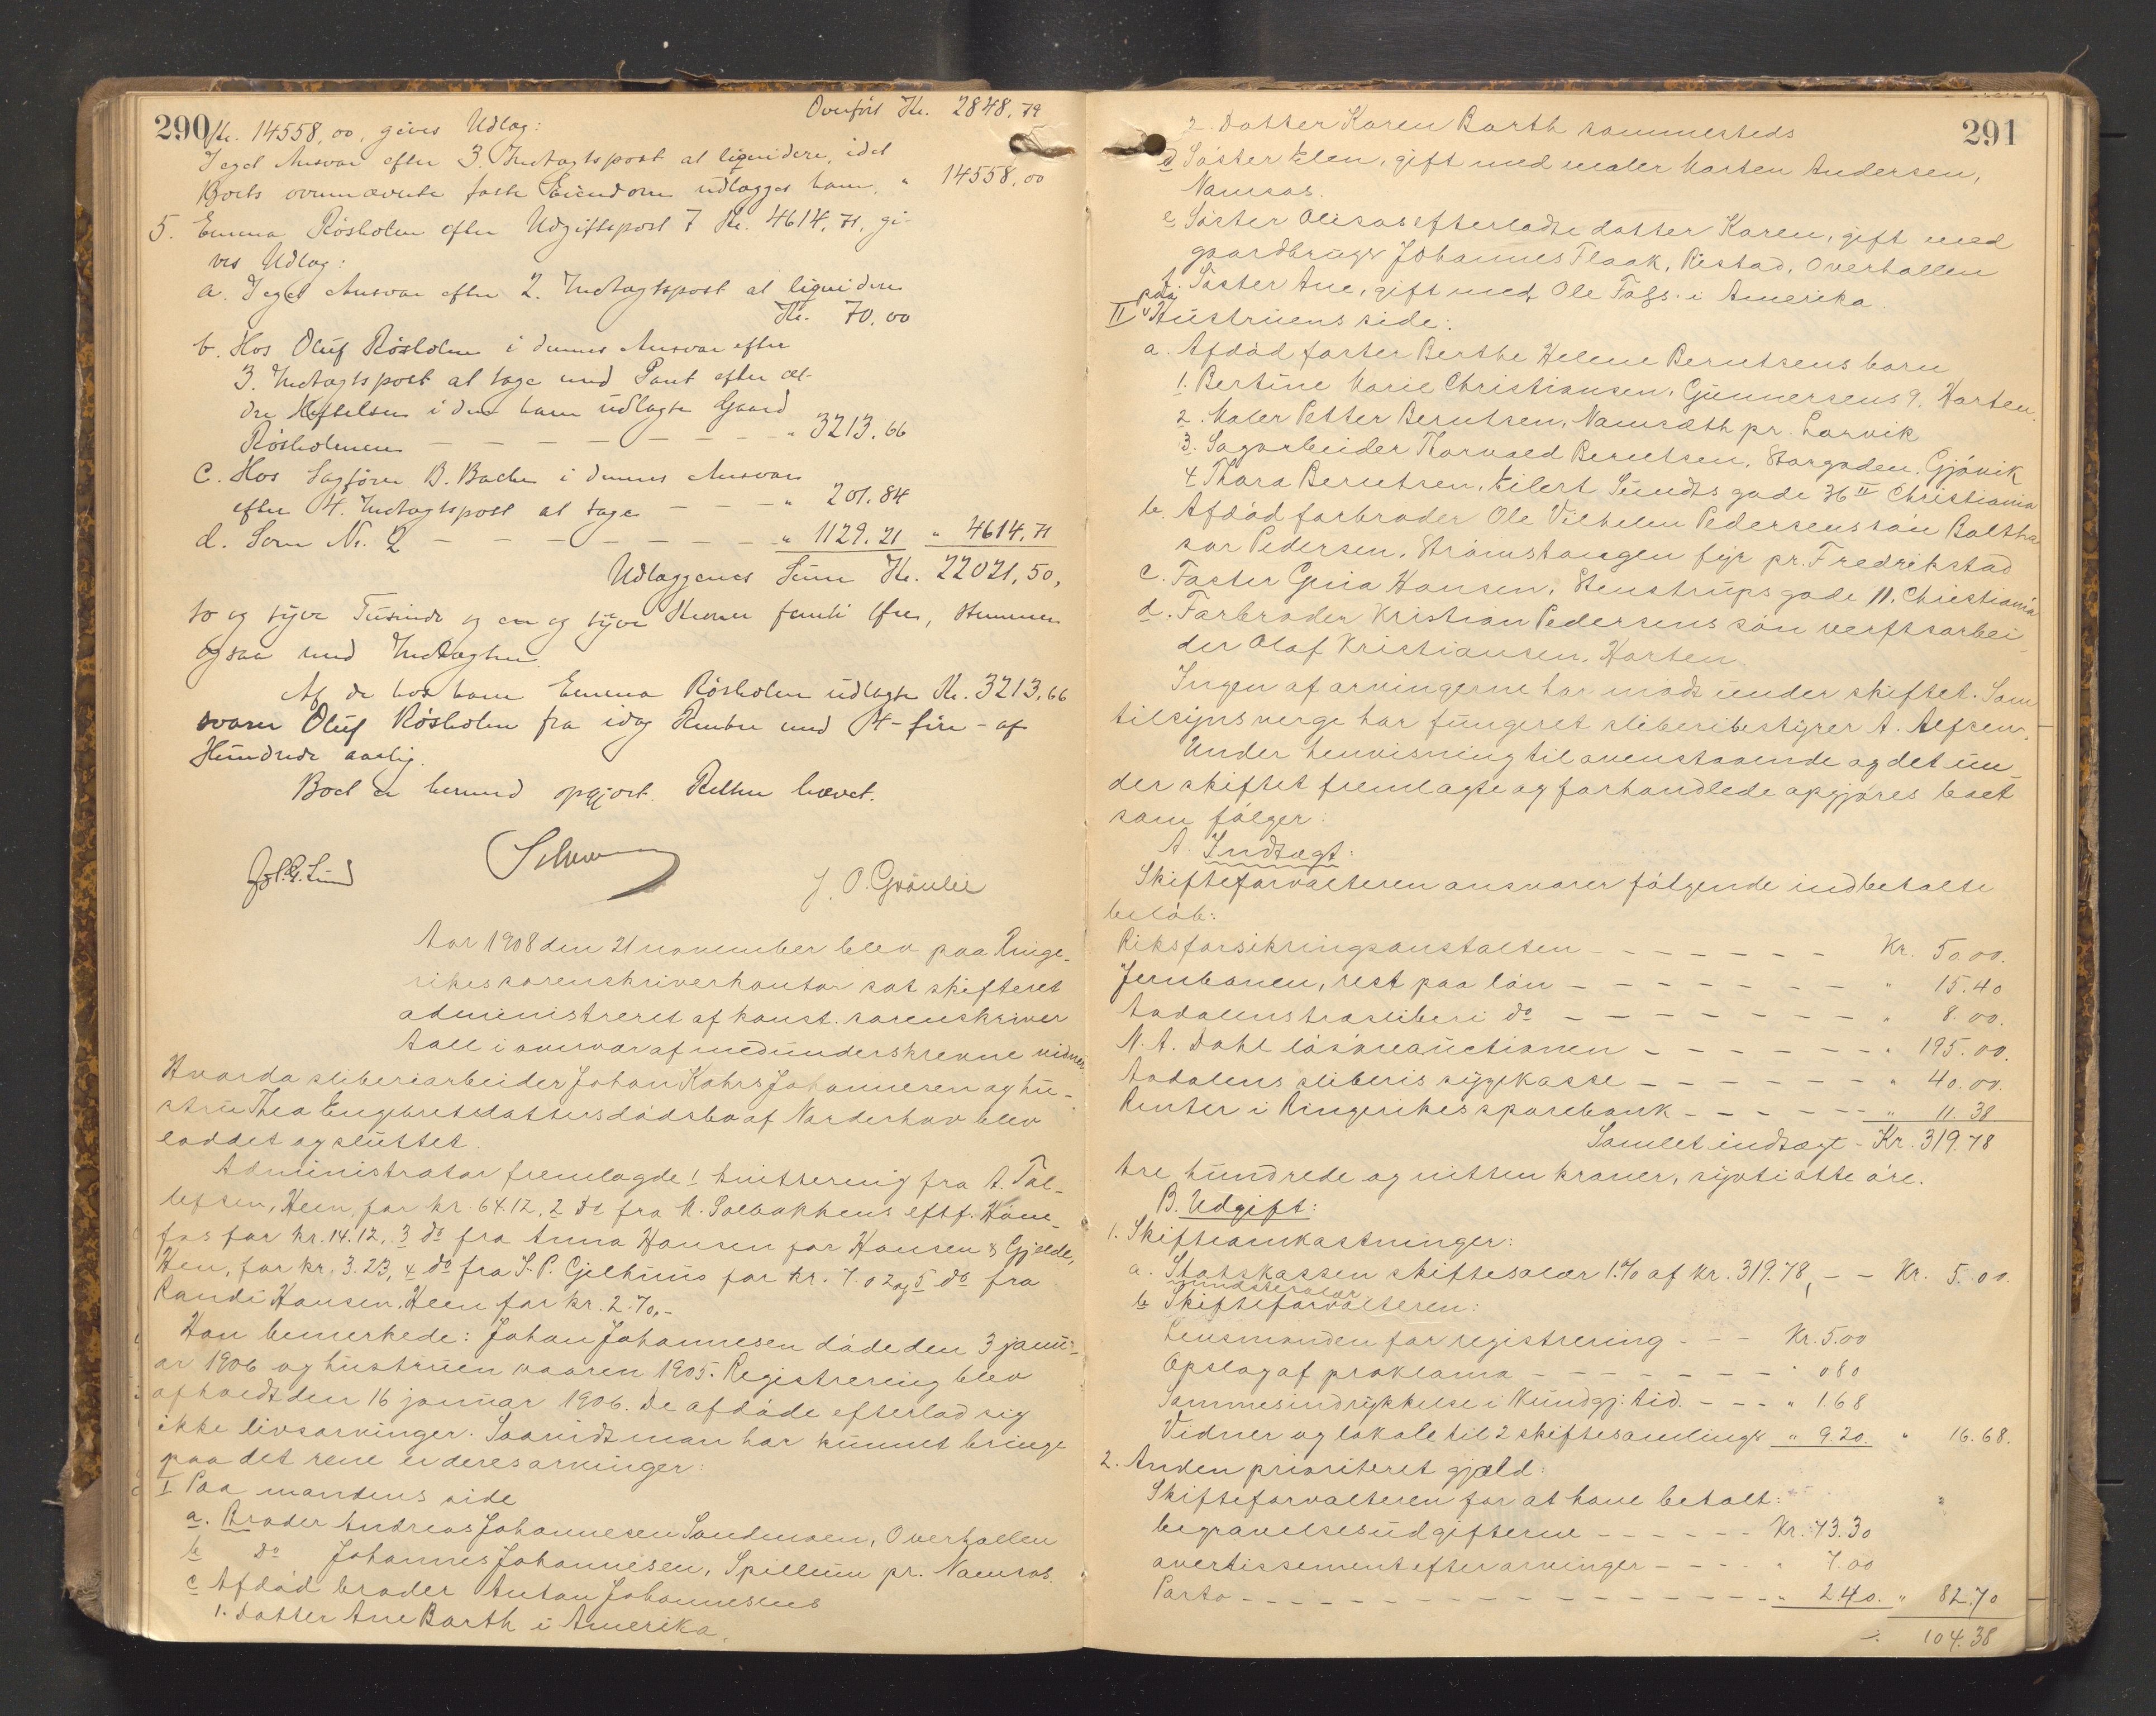 290
Overført Kr. 2848,79
Kr. 14558,00, gives Udlæg:
I eget Ansvar efter 3. Indtægtspost at liqvidere, idet
Boets ovennævnte faste Eiendom udlægges ham, " 14558,00
5. Emma Røsholm efter Udgiftspost 7 Kr. 4614,71, gi-
ves Udlæg:
a. I eget Ansvar efter 2. Indtægtspost at liqvidere
Kr. 70,00
b. Hos Oluf Røsholm i dennes Ansvar efter
3. Indtægtspost at tage med Pant efter æl-
dre Heftelser i den ham udlagte Gaard
Røsholmen " 3213.66
c. Hos Sagfører B. Bache i dennes Ansvar
efter 4. Indtægtspost at tage " 201.84
d. Som Nr. 2 " 1129.21 " 4614,71
Udlæggenes Sum Kr. 22021,50,
to og tyve Tusinde og en og tyve Kroner femti Øre, stemmer
ogsaa med Indtægten.
Af de hos ham Emma Røsholm udlagte Kr. 3213,66
svarer Oluf Røsholm fra idag Renter med 4 - fire - af
Hundrede aarlig.
Boet er hermed opgjort. Retten hævet.
Lund
J. O. Grønlie
Aar 1908 den 21 november blev paa Ringe-
rikes sorenskriverkontor sat skifteret
administreret af konst. sorenskriver
Aall i overvær af medunderskrevne vidner.
Hvorda sliberiarbeider Johan Kahrs Johannesen og hu-
stru Thea Engebretsdatters dødsbo af Norderhov blev
loddet og sluttet.
Administrator fremlagde 1 kvittering fra A. Tol-
lefsen, Heen, for kr. 64.12, 2 do fra M. Solbakkens eftf. Høne-
fos for kr. 14.12, 3 do fra Anna Hansen for Hansen & Gjelde,
Hen, for kr. 3.23, 4 do fra S. P. Gjelhuus for kr. 7.02 og 5 do fra
Randi Hansen, Heen for kr. 2.70.-
Han bemerkede: Johan Johannesen døde den 3 janu-
ar 1906 og hustruen vaaren 1905. Registrering blev
afholdt den 16 januar 1906. De afdøde efterlod sig
ikke livsarvinger. Saavidt man har kunnet bringe
paa det rene er deres arvinger:
I Paa mandens side
a. Broder Andreas Johannesen Sandmoen, Overhallen
b do Johannes Johannesen, Spillum pr. Namsos.
c Afdød broder Anton Johannesens
1. Datter Ane Barth i Amerika.
291
2. Datter Karen Barth sammesteds
d Søster Elen, gift med maler Morten Andersen,
Namsos.
e Søster Olisas efterladte datter Karen, gift med
gaardbruger Johannes Flaak, Ristad, Overhallen
f. Søster Ane, gift med Ole Fags. i Amerika.
II paa Hustruens side:
a. Afdød faster Berthe Helene Berntsens barn
1. Bertine Marie Christiansen, Gunnersens g. Horten.
2. Maler Petter Berntsen, Namsæth pr. Larvik
3. Sagarbeider Thorvald Berntsen, Storgaden, Gjøvik
4 Thora Berntsen, Eilert Sundts gade 36 II Christiania
b. Afdød farbroder Ole Vilhelm Pedersens søn Baltha
sar Pedersen, Strømstangen fyr pr. Fredrikstad
c. Faster Gina Hansen, Stenstrups gade 11, Christiania
d. Farbroder Kristian Pedersens søn verftsarbei-
der Olaf Kristiansen, Horten.
Ingen af arvingerne har mødt under skiftet. Som
tilsynsverge har fungeret sliberibestyrer A. Alfsen.
Under henvisning til ovenstaaende og det un-
der skiftet fremlagte og forhandlede opgjøres boet
som følger:
A. Indtægt:
Skifteforvalteren ansvarer følgende indbetalte
beløb:
Riksforsikringsanstalten Kr. 50.00.
Jernbanen, rest paa løn " 15.40
Aadalens træsliberi do " 8.00.
N. A. Dahl løsøreauctionen " 195.00.
Aadalens sliberis sygekasse " 40.00.
Renter i Ringerikes sparebank " 11.38
Samlet indtægt - Kr. 319.78
tre hundrede og nitten kroner, sytti otte øre.
B. Udgift:
1. Skifteomkostninger:
a. Statskassen skiftesalær 1.% af kr. 319.78, mindstesalær Kr. 5.00.
b Skifteforvalteren:
Lensmanden for registrering Kr. 5.00
Opslag af proklama " 0 80
Sammes indrykkelse i Kundgj. tid. " 1.68
Vidner og lokale til 2 skiftesamlinger " 9.20. " 16.68.
2. Anden prioriteret gjæld:
Skifteforvalteren for at have betalt:
begravelsesudgifterne Kr. 73.30
avertissement efter arvinger " 7.00
Porto " 2.40. " 82.70
÷ 104.38